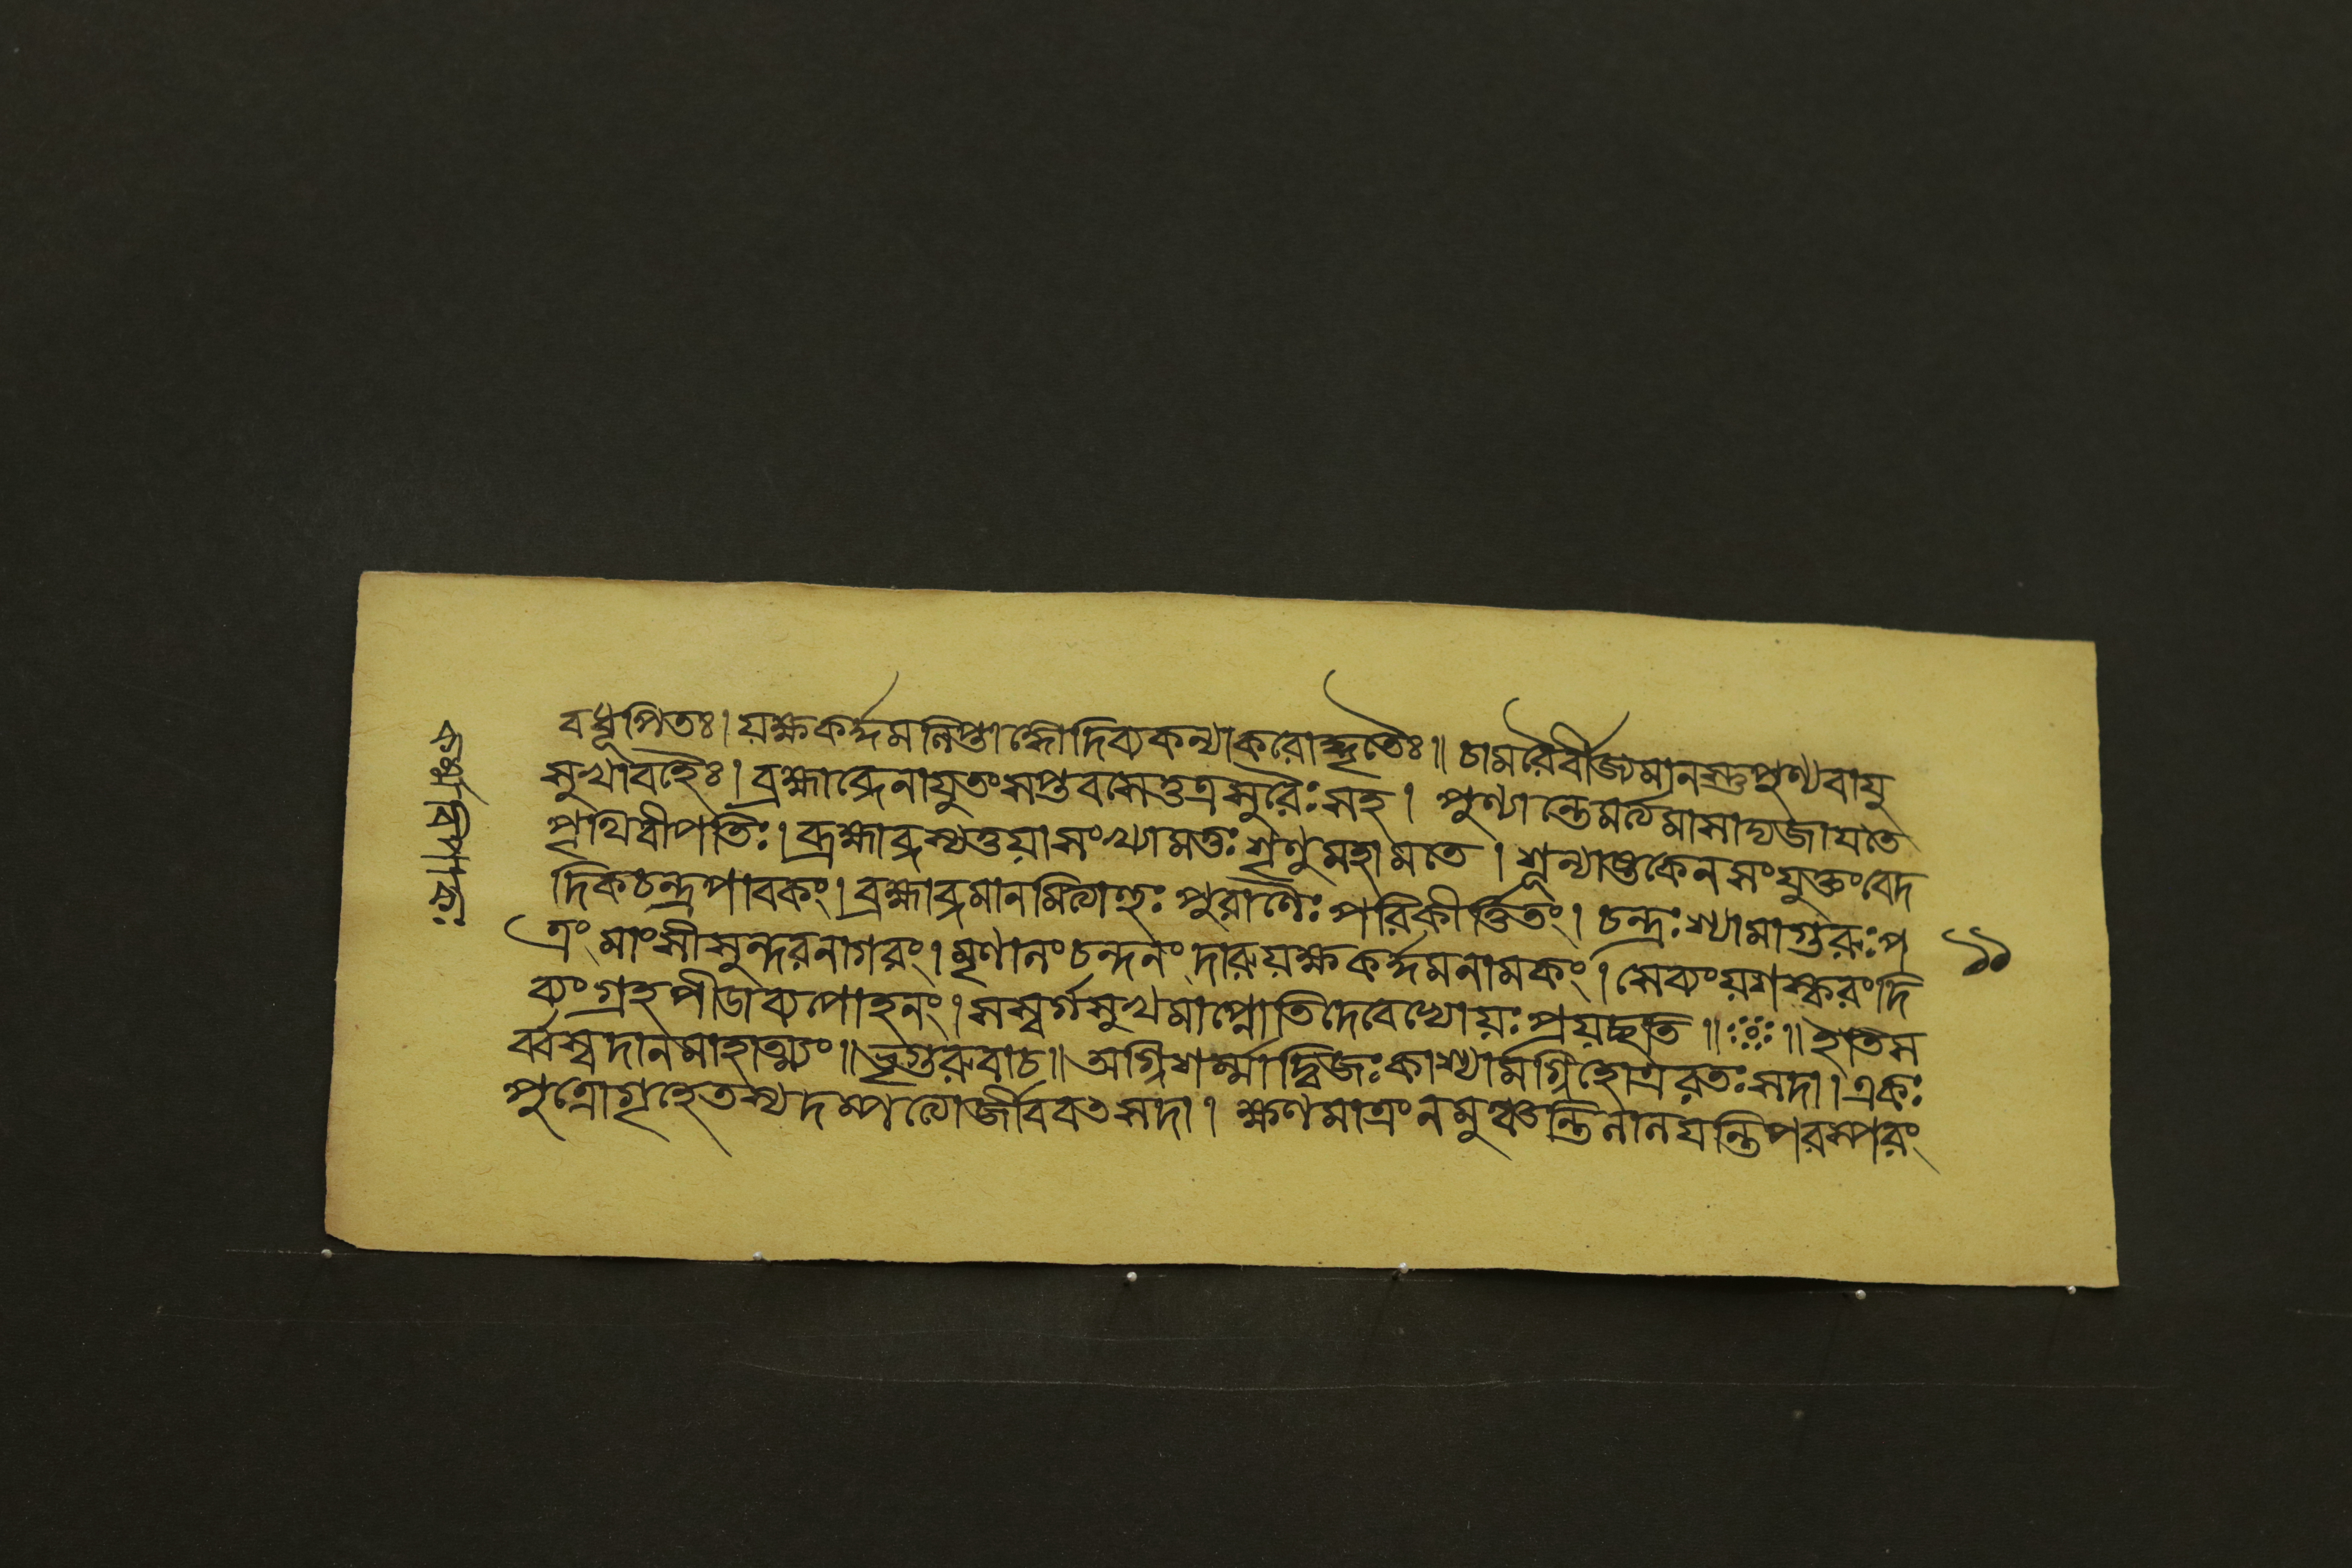 বধূপিতঃ। যক্ষকর্দ্দমলিপ্তাঙ্গোদিব্যকন্যাকরোদ্ধৃতৈঃ॥ চামরৈর্বীজ্যমানস্তুপুণ্যবায়ু
সুখাবহৈঃ। ব্রহ্মাব্দেনাযুতংসপ্তবসেত্তত্রসুরৈঃসহ। পুণ্যান্তেমর্ত্যমাসাদ্যজায়তে
পৃথিবীপতিঃ। ব্রহ্মাব্দস্যতুয়াসংখ্যামত্তঃশৃণুমহামতে। শূন্যাষ্টকেনসংযুক্তংবেদ
দিকচন্দ্রপাবকং। ব্রহ্মাব্দমানমিত্যাহুঃ পুরাণৈঃ পরিকীর্ত্তিতং। চন্দ্রঃশ্যামাগুরুঃপ
ত্রং মাংসীসুন্দরনাগরং। মৃণালংচন্দনং দারুযক্ষকর্দ্দমনামকং। সেব্যংযশস্করংদি
ব্যংগ্রহপীডাব্যপোহনং। সস্বর্গসুখমাপ্নোতিদেবেভ্যোযঃপ্রযচ্ছতি॥ ॥ইতিস
র্ব্বস্বদানমাহাত্ম্যং॥ ভৃগুরুবাচ॥ অগ্নিশর্ম্মাদ্বিজঃকাশ্যামগ্নিহোত্ররতঃসদা। একঃ
পুত্রোগৃহেতস্যদম্পত্যোর্জীবিবৎসদা। ক্ষণমাত্রংনমুঞ্চন্তিলালযন্তিপরস্পরং
১১